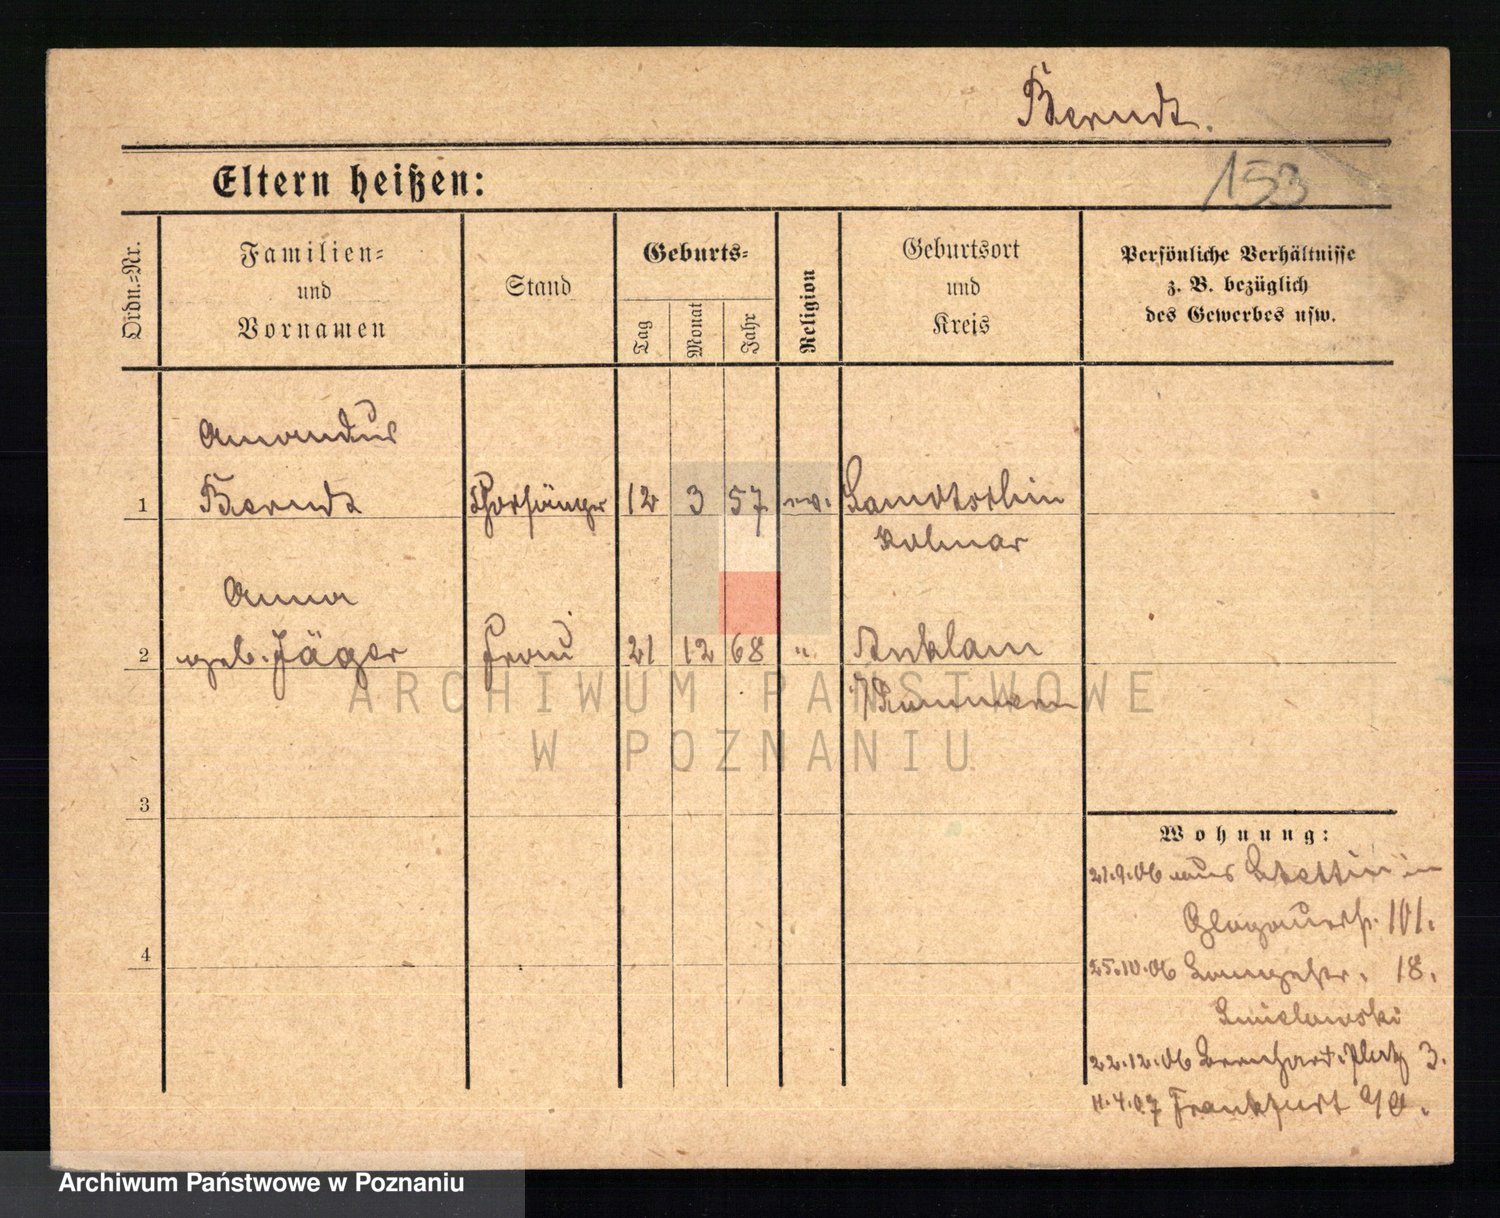 Berndt.
153
Eltern heißen:
Ordn.=Nr.
Familien=
und
Vornamen
Stand
Geburts=
Tag
Monat
Jahr
Religion
Geburtsort
und
Kreis
Persönliche Verhältnisse
z. B. bezüglich
des Gewerbes usw.
Amandus
1 Berndt Chorsänger 12 3 57 ev.
Kolmar
Anna
2 geb. Jäger Frau 21 12 68 " Anklam
3
4
Wohnung:
21.9.06 aus Stettin in
Glogauerstr. 101.
25.10.06 Langestr. 18.
22.12.06 Bernhard. Platz 3.
11.4.07 Frankfurt a/O.
ARCHIWUM PAŃSTWOWE
W POZNANIU
Archiwum Państwowe w Poznaniu